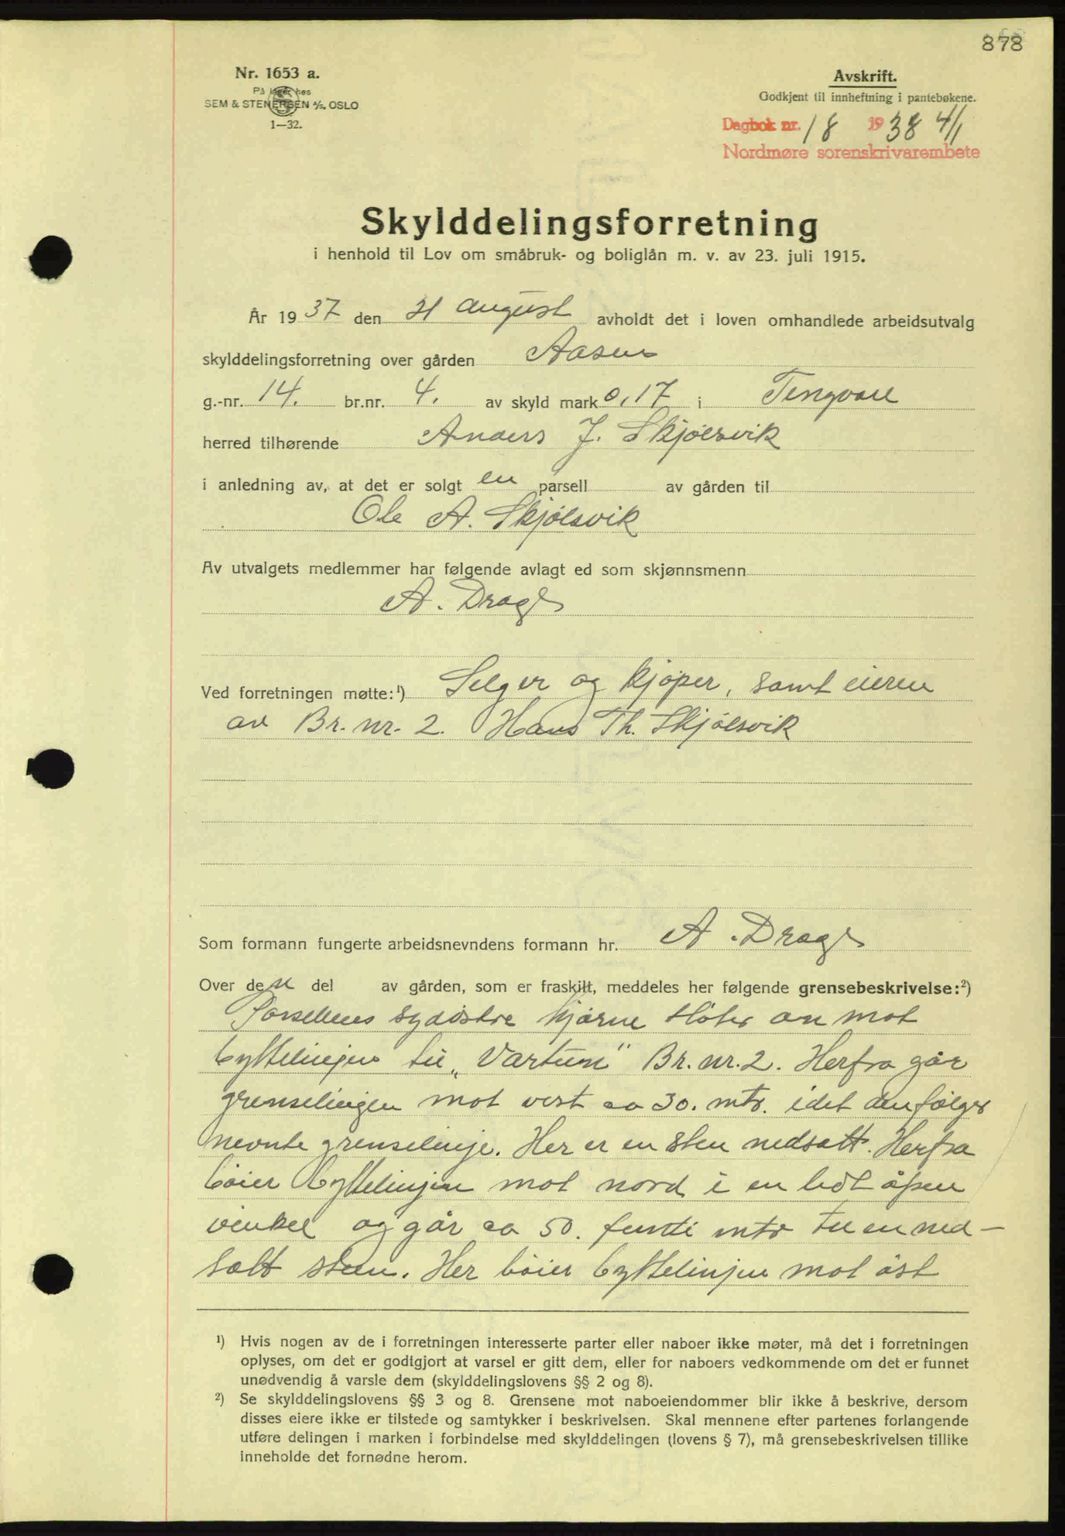 878
Nr. 1653 a.
På lager hos
SEM & STENERSEN A/S, OSLO
1—32.
Avskrift.
Godkjent til innheftning i pantebøkene.
Dagbok nr. 18 1938 4/1
Nordmøre sorenskrivarembete
Skylddelingsforretning
i henhold til Lov om småbruk- og boliglån m. v. av 23. juli 1915.
År 1937 den 21 august avholdt det i loven omhandlede arbeidsutvalg
skylddelingsforretning over gården Aasen
g.-nr. 14. br.nr. 4. av skyld mark 0,17 i Tingvoll
herred tilhørende Anders J. Skjølsvik
i anledning av, at det er solgt en parsell av gården til
Ole A. Skjølsvik
Av utvalgets medlemmer har følgende avlagt ed som skjønnsmenn
A. Drags
Ved forretningen møtte:¹) Selger og kjøper, samt eieren
av Br. nr. 2. Hans Th. Skjølsvik
Som formann fungerte arbeidsnevndens formann hr. A. Drags
Over den del av gården, som er fraskilt, meddeles her følgende grensebeskrivelse:²)
Parsellens sydøstre hjørne støter an mot
byttelinjen til „Vartun" Br. nr. 2. Herfra går
grenselinjen mot vest ca 30. mtr. idet den følger
nevnte grenselinje. Her er en sten nedsatt. Herfra
bøier byttelinjen mot nord i en lidt åpen
vinkel og går ca 50. femti mtr til en ned-
satt sten. Her bøier byttelinjen mot øst
¹) Hvis nogen av de i forretningen interesserte parter eller naboer ikke møter, må det i forretningen
oplyses, om det er godtgjort at varsel er gitt dem, eller for naboers vedkommende om det er funnet
unødvendig å varsle dem (skylddelingslovens §§ 2 og 8).
²) Se skylddelingslovens §§ 3 og 8. Grensene mot naboeiendommer blir ikke å beskrive, dersom
disses eiere ikke er tilstede og samtykker i beskrivelsen. Skal mennene efter partenes forlangende
utføre delingen i marken i forbindelse med skylddelingen (lovens § 7), må grensebeskrivelsen tillike
inneholde det fornødne herom.